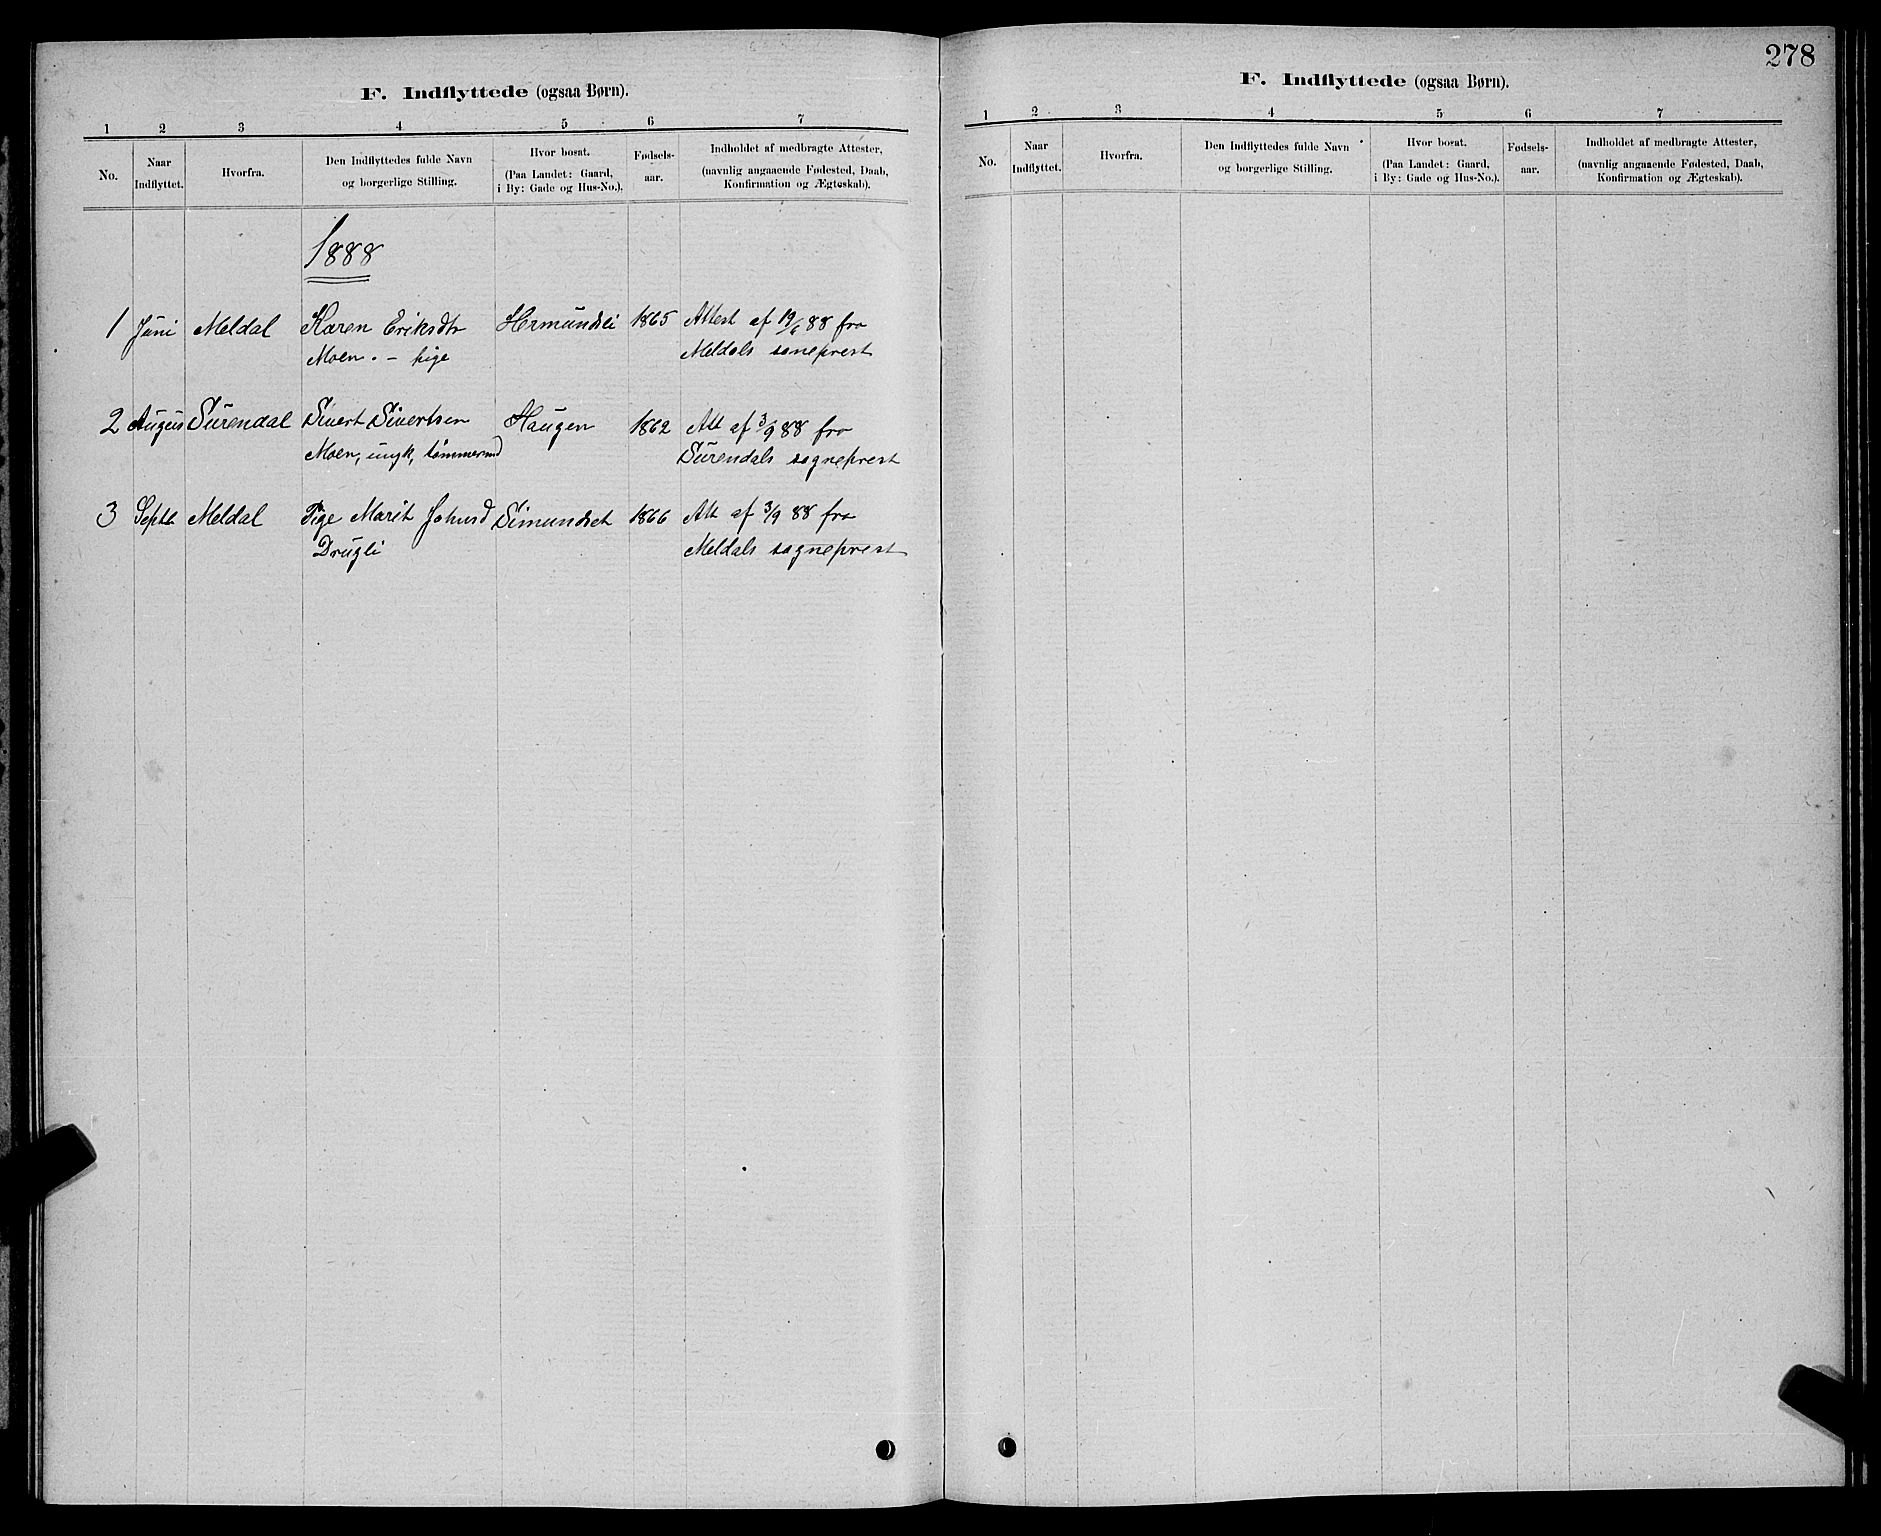 F. Indflyttede (ogsaa Børn).
1 2 3 4 5 6 7
No.
Naar
Indflyttet.
Hvorfra.
Den Indflyttedes fulde Navn
og borgerlige Stilling.
Hvor bosat.
(Paa Landet: Gaard,
i By: Gade og Hus-No.).
Fødsels-
aar.
Indholdet af medbragte Attester,
(navnlig angaaende Fødested, Daab,
Konfirmation og Ægteskab).
1888
1 Juni Meldal Karen Eriksdtr Hermundsli 1865 Attest af 19/6 88 fra
Moen. - pige Meldals soneprest
2 Augus Surendal Sivert Sivertsen Haugen 1862 Att af 3/9 88 fra
Moen, ungk, tømmermd Surendals sogneprest
3 Septb Meldal Pige Marit Johnsd Simundset 1866 Att af 3/9 88 fra
Drugli Meldals sogneprest
278
F. Indflyttede (ogsaa Børn).
1 2 3 4 5 6 7
No.
Naar
Indflyttet.
Hvorfra.
Den Indflyttedes fulde Navn
og borgerlige Stilling.
Hvor bosat.
(Paa Landet: Gaard,
i By: Gade og Hus-No.).
Fødsels-
aar.
Indholdet af medbragte Attester,
(navnlig angaaende Fødested, Daab,
Konfirmation og Ægteskab).